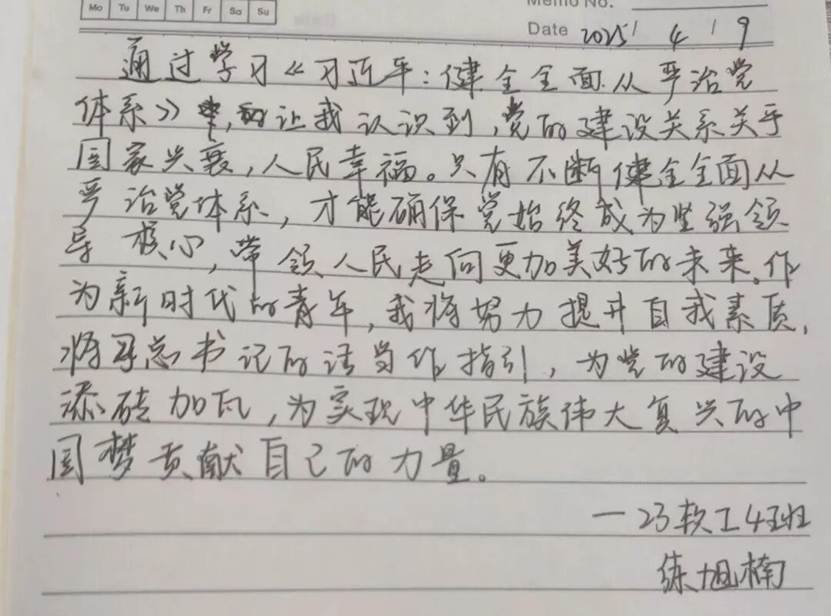 Mo Tu We Th Fr Sa Su
Memo No.
Date 2025 / 4 / 9
通过学习《习近平:健全全面从严治党
体系》,让我认识到,党的建设关系关乎
国家兴衰,人民幸福。只有不断健全全面从
严治党体系,才能确保党始终成为坚强领
导核心,带领人民走向更加美好的未来.作
为新时代的青年,我将努力提升自我素质,
将习总书记的话当作指引,为党的建设
添砖加瓦,为实现中华民族伟大复兴的中
国梦贡献自己的力量。
一23软工4班
练旭楠